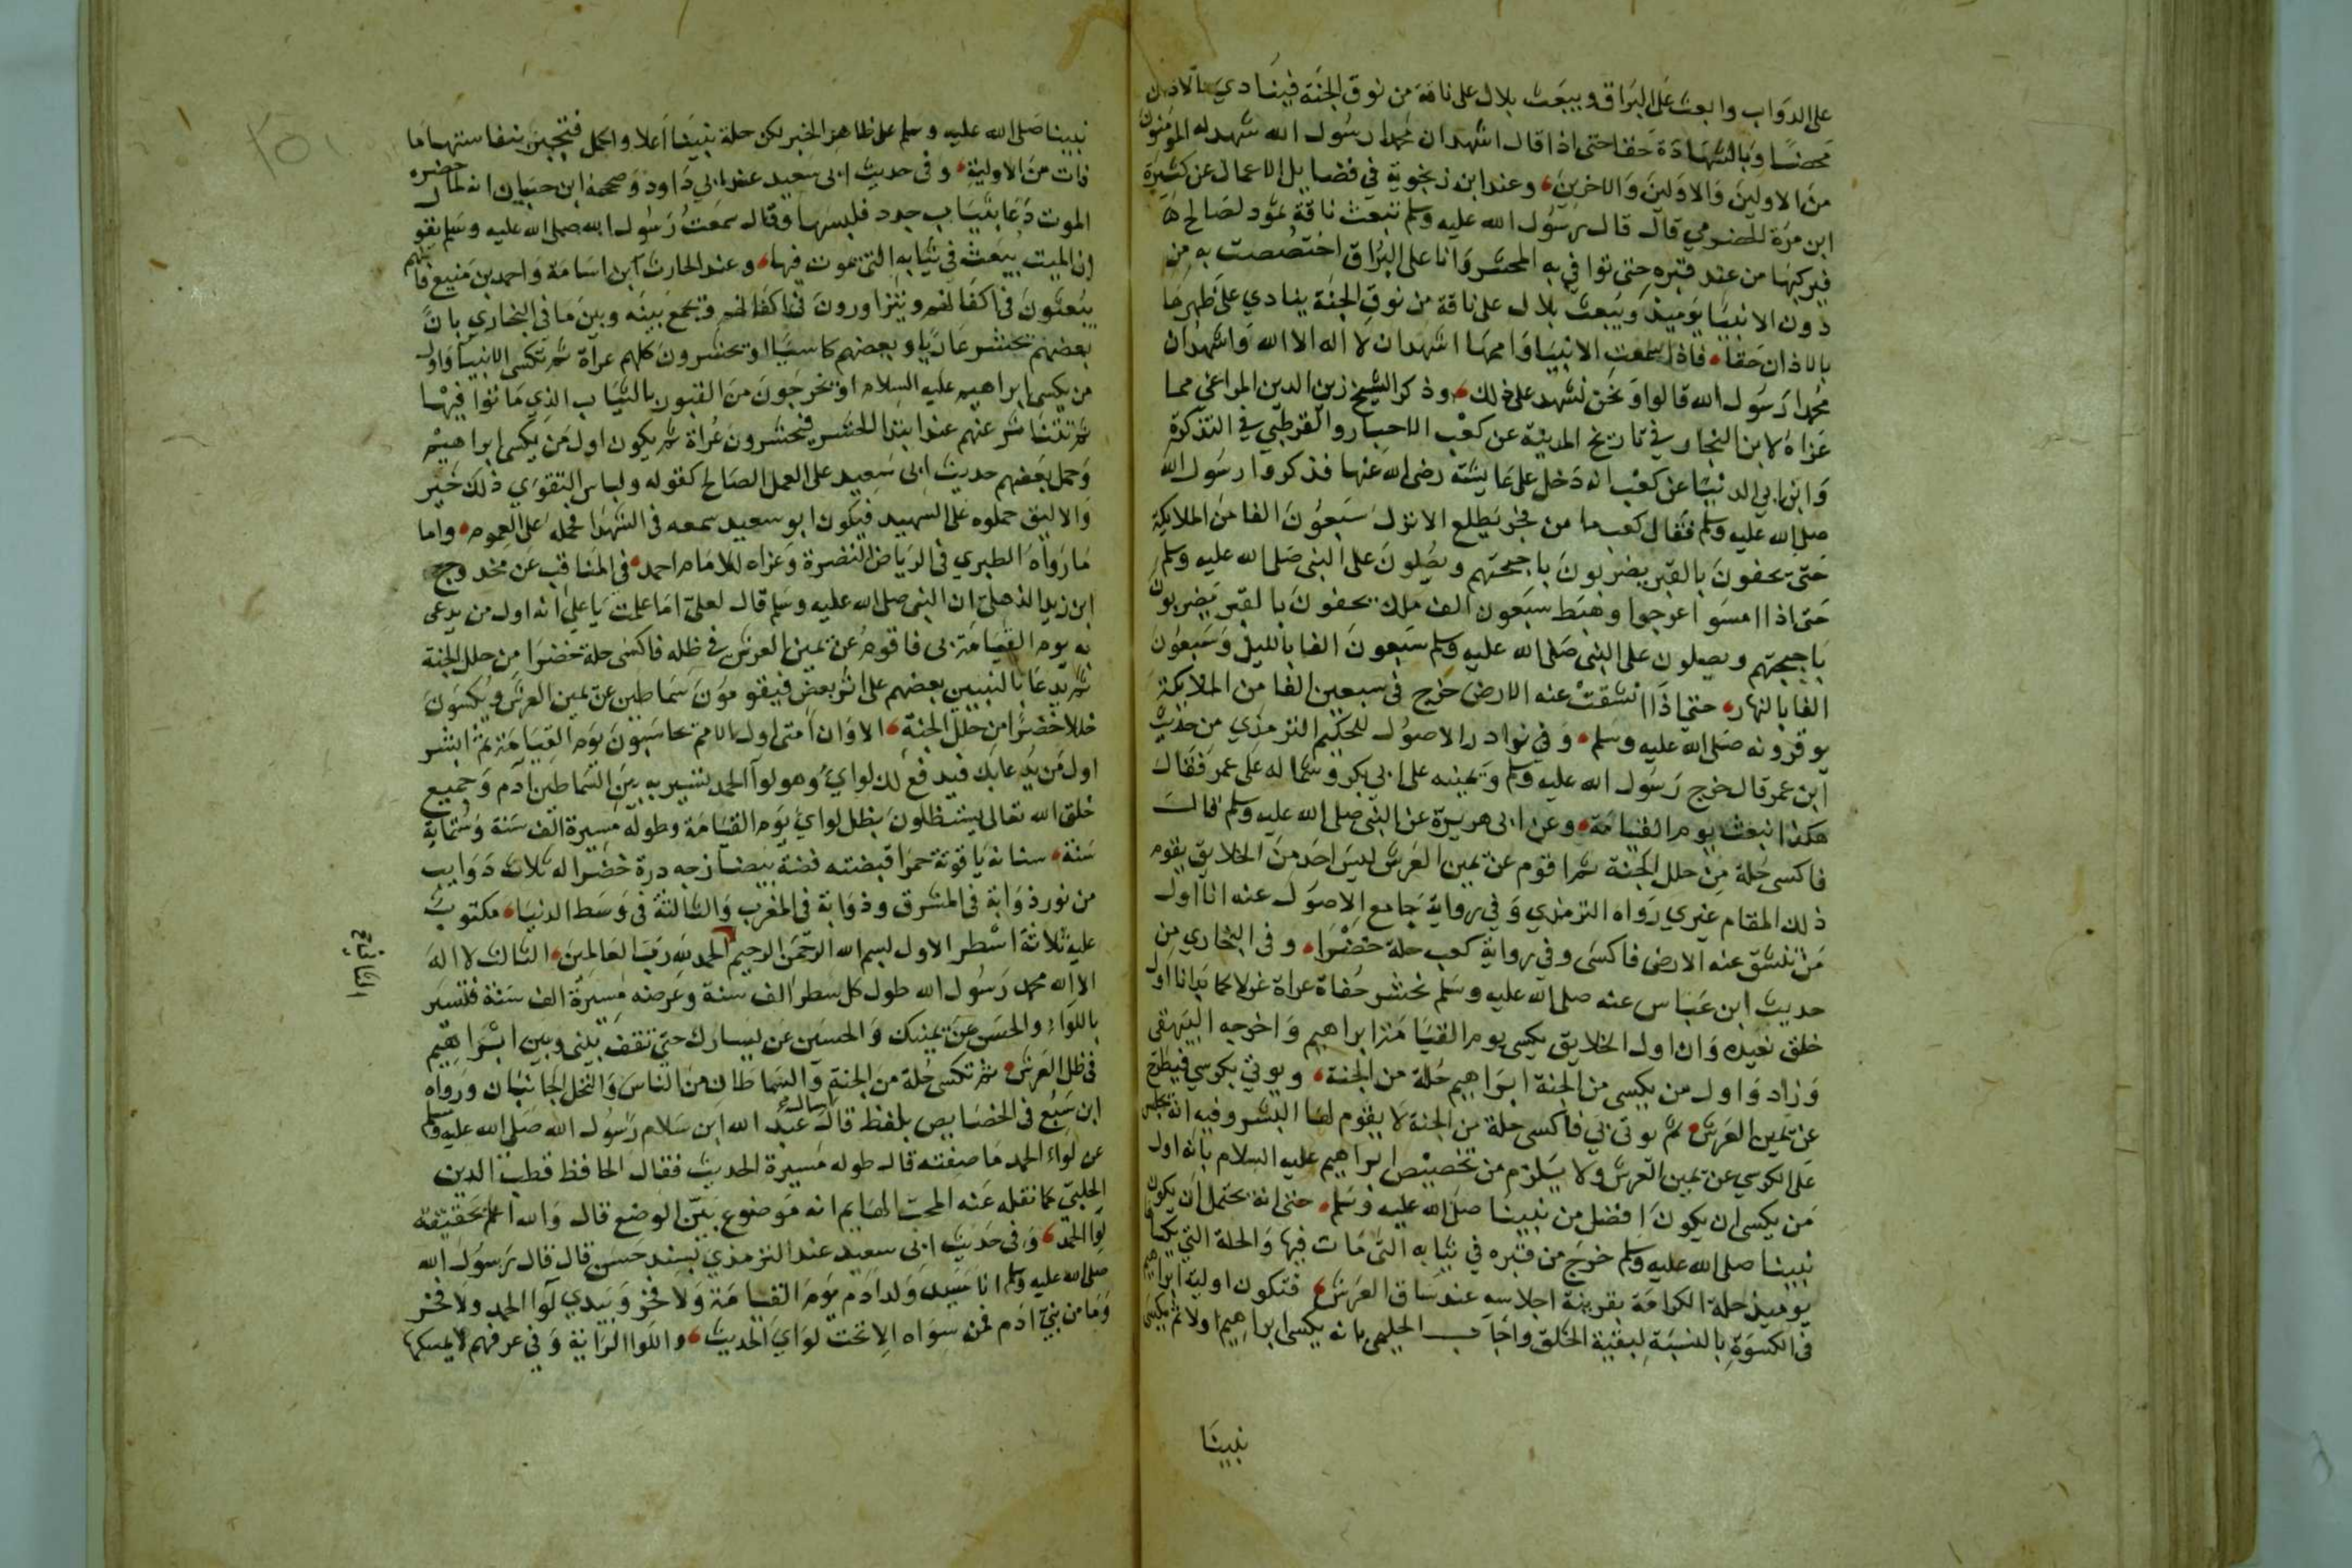 على الدواب وابعث على البراق ويبعث بلال على ناقة من نوق الجنة فينادي بالاذان
محضا وبالشهادة حقا حتى اذا قال اشهد ان محمدا رسول الله شهد له المؤمنون
من الاولين والاولين والاخرين، وعند ابن زنجوية في فضايل الاعمال عن كثيرة
ابن مرة الحضرمي قال قال رسول الله عليه وسلم تبعث ناقة ثمود لصالح
فيركبها من عند قبره حتى توافي به المحشر وانا على البراق اختصصت به من
دون الانبيا يوميذ ويبعث بلال على ناقة من نوق الجنة ينادي على ظهرها
بالاذان حقا، فاذا سمعت الانبيا واممها اشهد ان لا اله الا الله واشهد ان
محمدا رسول الله قالوا ونحن نشهد على ذلك، وذكر الشيخ زين الدين المراغي مما
عزاه لابن النجار في تاريخ المدينة عن كعب الاحبار والقرطبي في التذكرة
وابن ابي الدنيا عن كعب انه دخل على عايشة رضى الله عنها فذكروا رسول الله
صلى الله عليه وسلم فقال كعب ما من فجر يطلع الا نزل سبعون الفا من الملايكة
حتى يحفون بالقبر يضربون باجنحتهم ويصلون على النبى صلى الله عليه وسلم
حتى اذا امسوا عرجوا وهبط سبعون الف ملك يحفون بالقبر يضربون
باجنحتهم ويصلون على النبى صلى الله عليه وسلم سبعون الفا بالليل وسبعون
الفا بالنهار، حتى اذا انشقت عنه الارض خرج فى سبعين الفا من الملايكة
يوقرونه صلى الله عليه وسلم، وفي نوادر الاصول للحكيم الترمذي من حديث
ابن عمر قال خرج رسول الله عليه وسلم ويمينه على ابى بكر وشماله على عمر فقال
هكذا نبعث يوم القيامة، وعن ابى هريرة عن النبى صلى الله عليه وسلم قال
فاكسى حلة من حلل الجنة ثم اقوم عن يمين العرش ليس احد من الخلايق يقوم
ذلك المقام غيري رواه الترمذي وفي رواية جامع الاصول عنه انا اول
من تنشق عنه الارض فاكسى وفي رواية كعب حلة خضرا، وفى البخاري من
حديث ابن عباس عنه صلى الله عليه وسلم تحشر حفاة عراة غرلا كما بدانا اول
خلق نعيده وان اول الخلايق يكسى يوم القيامة ابراهيم واخرجه البيهقى
وزاد واول من يكسى من الجنة ابراهيم حلة من الجنة، ويوتي بكرسي فيطرح
عن يمين العرش ثم يوتى بي فاكسى حلة من الجنة لا يقوم لها البشر وفيه انه يجلس
على الكرسي عن يمين العرش ولا يلزم من تخصيص ابراهيم عليه السلام بانه اول
من يكسى ان يكون افضل من نبينا صلى الله عليه وسلم، حتى انه يحتمل ان يكون
نبينا صلى الله عليه وسلم خرج من قبره في ثيابه التى مات فيها والحلة التي يكساها
يوميذ حلة الكرامة بقرينة اجلاسه عند ساق العرش، فتكون اولية ابراهيم
فى الكسوة بالنسبة لبقية الخلق واجاب الحليمي بانه يكسى ابراهيم اولا ثم يكسى
نبينا
نبينا صلى الله عليه وسلم على ظاهر الخبر لكن حلة نبينا اعلا واكمل فتجبر بنفاستها ما
فات من الاولية، وفى حديث ابى سعيد عند ابي داود وصححه ابن حبان انه لما حضره
الموت دعا بثياب جدد فلبسها وقال سمعت رسول الله صلى الله عليه وسلم يقو
ان الميت يبعث في ثيابه التى يموت فيها، وعند الحارث ابن اسامة واحمد بن منيع فانهم
يبعثون فى اكفانهم ويتزاورون في اكفانهم ويجمع بينه وبين ما فى البخاري بان
بعضهم يحشر عاريا وبعضهم كاسيا او يحشرون كلهم عراة ثم تكسى الانبيا واول
من يكسى ابراهيم عليه السلام او يخرجون من القبور بالثياب الذي ماتوا فيها
ثم تتناثر عنهم عند ابتدا الحشر فيحشرون عراة ثم يكون اول من يكسى ابراهيم
وحمل بعضهم حديث ابى سعيد على العمل الصالح كقوله ولباس التقوى ذلك خير
والاليق حملوه على الشهيد فيكون ابو سعيد سمعه في الشهدا فحمله على العموم، واما
ما رواه الطبري فى الرياض النضرة وعزاه للامام احمد، في المناقب عن مخدوج
ابن زيد الذهلى ان النبى صلى الله عليه وسلم قال لعلى اما علمت يا على انه اول من يدعى
به يوم القيامة بى فاقوم عن يمين العرش في ظله فاكسى حلة خضرا من حلل الجنة
ثم يدعا بالنبيين بعضهم على اثر بعض فيقومون سماطين عن يمين العرش ويكسون
حللا خضرا من حلل الجنة، الا وان امتى اول الامم يحاسبون يوم القيامة ثم ابشر
اول من يدعا بك فيدفع لك لواي وهو لوا الحمد تسير به بين السماطين ادم وجميع
خلق الله تعالى يستظلون بظل لواي يوم القيامة وطوله مسيرة الف سنة وستماية
سنة، سنانه ياقوتة حمرا قبضته فضة بيضا زجه درة خضرا له ثلاث دوايب
من نور ذوابة في المشرق وذوابة في المغرب والثالثة فى وسط الدنيا، مكتوب
عليه ثلاثة اسطر الاول بسم الله الرحمن الرحيم الحمد لله رب العالمين، الثالث لا اله
الثاني
الا الله محمد رسول الله طول كل سطر الف سنة وعرضه مسيرة الف سنة فتسير
باللواء والحسن عن يمينك والحسين عن يسارك حتى تقف بينى وبين ابراهيم
فى ظل العرش، ثم تكسى حلة من الجنة والسماطان من الناس والنخل الجانبان ورواه
ابن سبع فى الخصايص بلفظ قال سال عبد الله ابن سلام رسول الله صلى الله عليه وسلم
عن لواء الحمد ما صفته قال طوله مسيرة الحديث فقال الحافظ قطب الدين
الحلبى كما نقله عنه المحب الهايم انه موضوع بين الوضع قال والله اعلم بحقيقة
لوا الحمد، وفى حديث ابى سعيد عند الترمذي بسند حسن قال قال رسول الله
صلى الله عليه وسلم انا سيد ولد ادم يوم القيامة ولا فخر وبيدي لوا الحمد ولا فخر
وما من بني ادم فمن سواه الا تحت لواي الحديث، واللوا الراية وفي عرفهم لا يمسكها